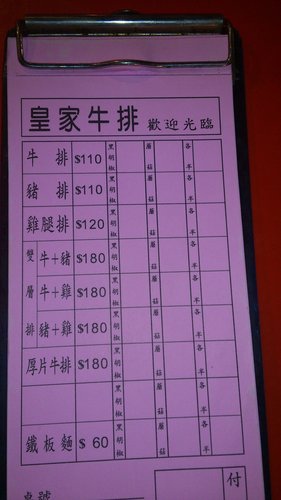 皇家牛排 歡迎光臨
牛排 $110 黑胡椒 蘑菇 各半
豬排 $110 黑胡椒 蘑菇 各半
雞腿排 $120 黑胡椒 蘑菇 各半
雙 牛+豬 $180 黑胡椒 蘑菇 各半
層 牛+雞 $180 黑胡椒 蘑菇 各半
排 豬+雞 $180 黑胡椒 蘑菇 各半
厚片牛排 $180 黑胡椒 蘑菇 各半
黑胡椒 蘑菇 各半
鐵板麵 $ 60 黑胡椒 蘑菇 各半
桌號
付